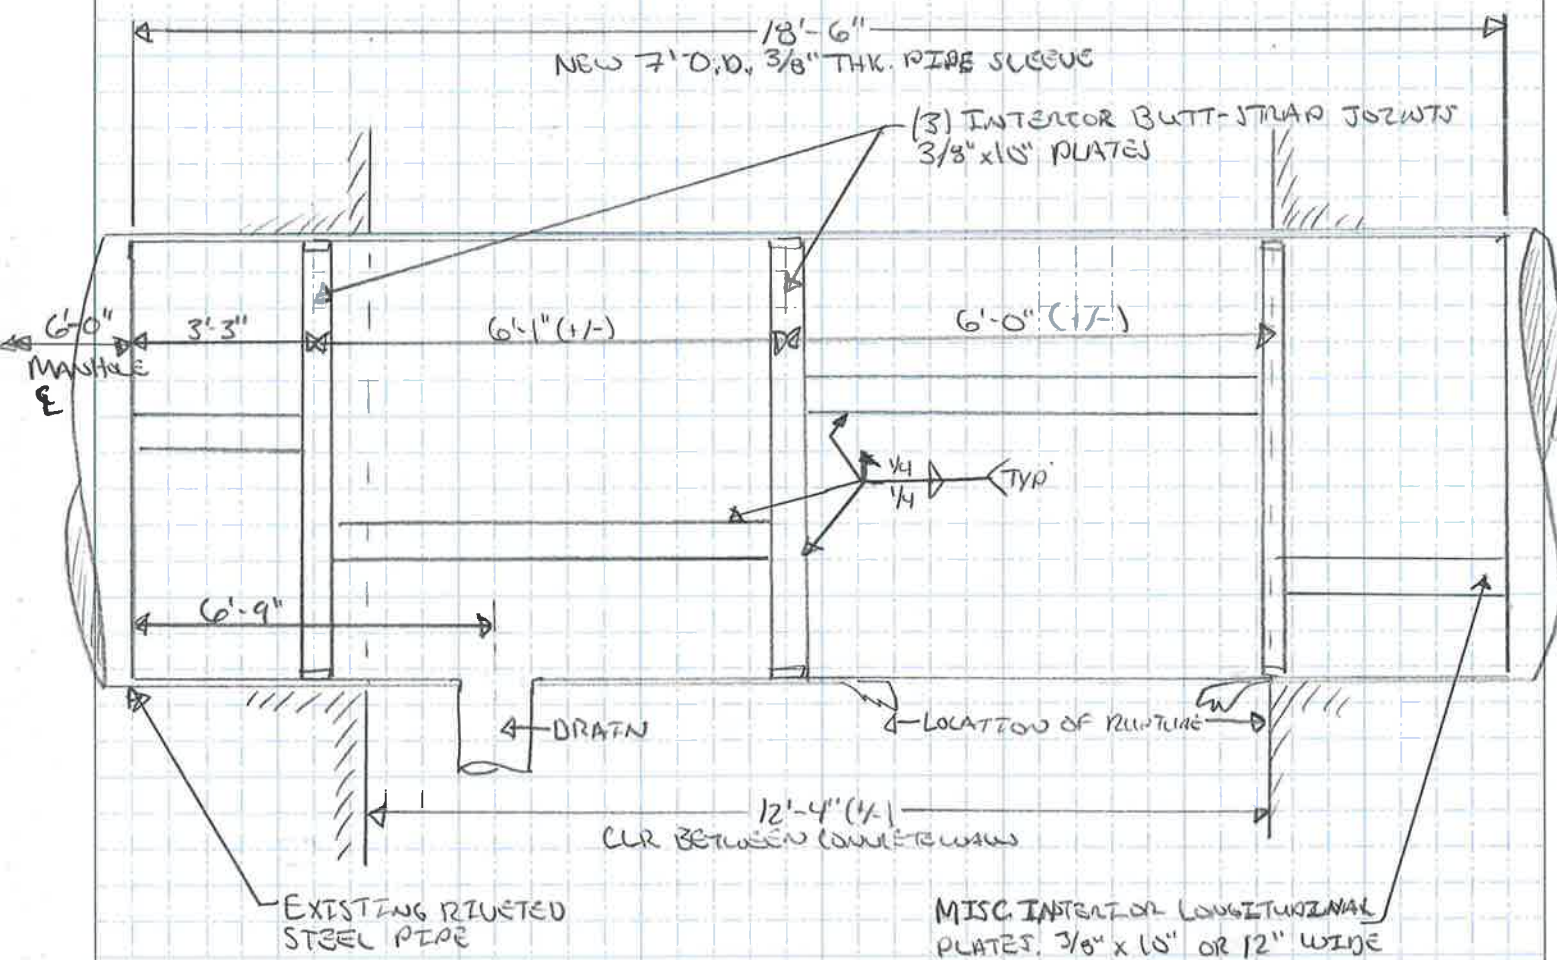 18'-6"
NEW 7' O.D., 3/8" THK. PIPE SLEEVE
(3) INTERIOR BUTT-STRAP JOINTS
3/8" x 10" PLATES
6'-0"
MANHOLE
℄
3'-3"
6'-1" (+/-)
6'-0" (+/-)
1/4
1/4
TYP
6'-9"
DRAIN
LOCATION OF RUPTURE
12'-4" (+/-)
CLR BETWEEN CONCRETE WALLS
EXISTING RIVETED
STEEL PIPE
MISC. INTERIOR LONGITUDINAL
PLATES. 3/8" x 10" OR 12" WIDE